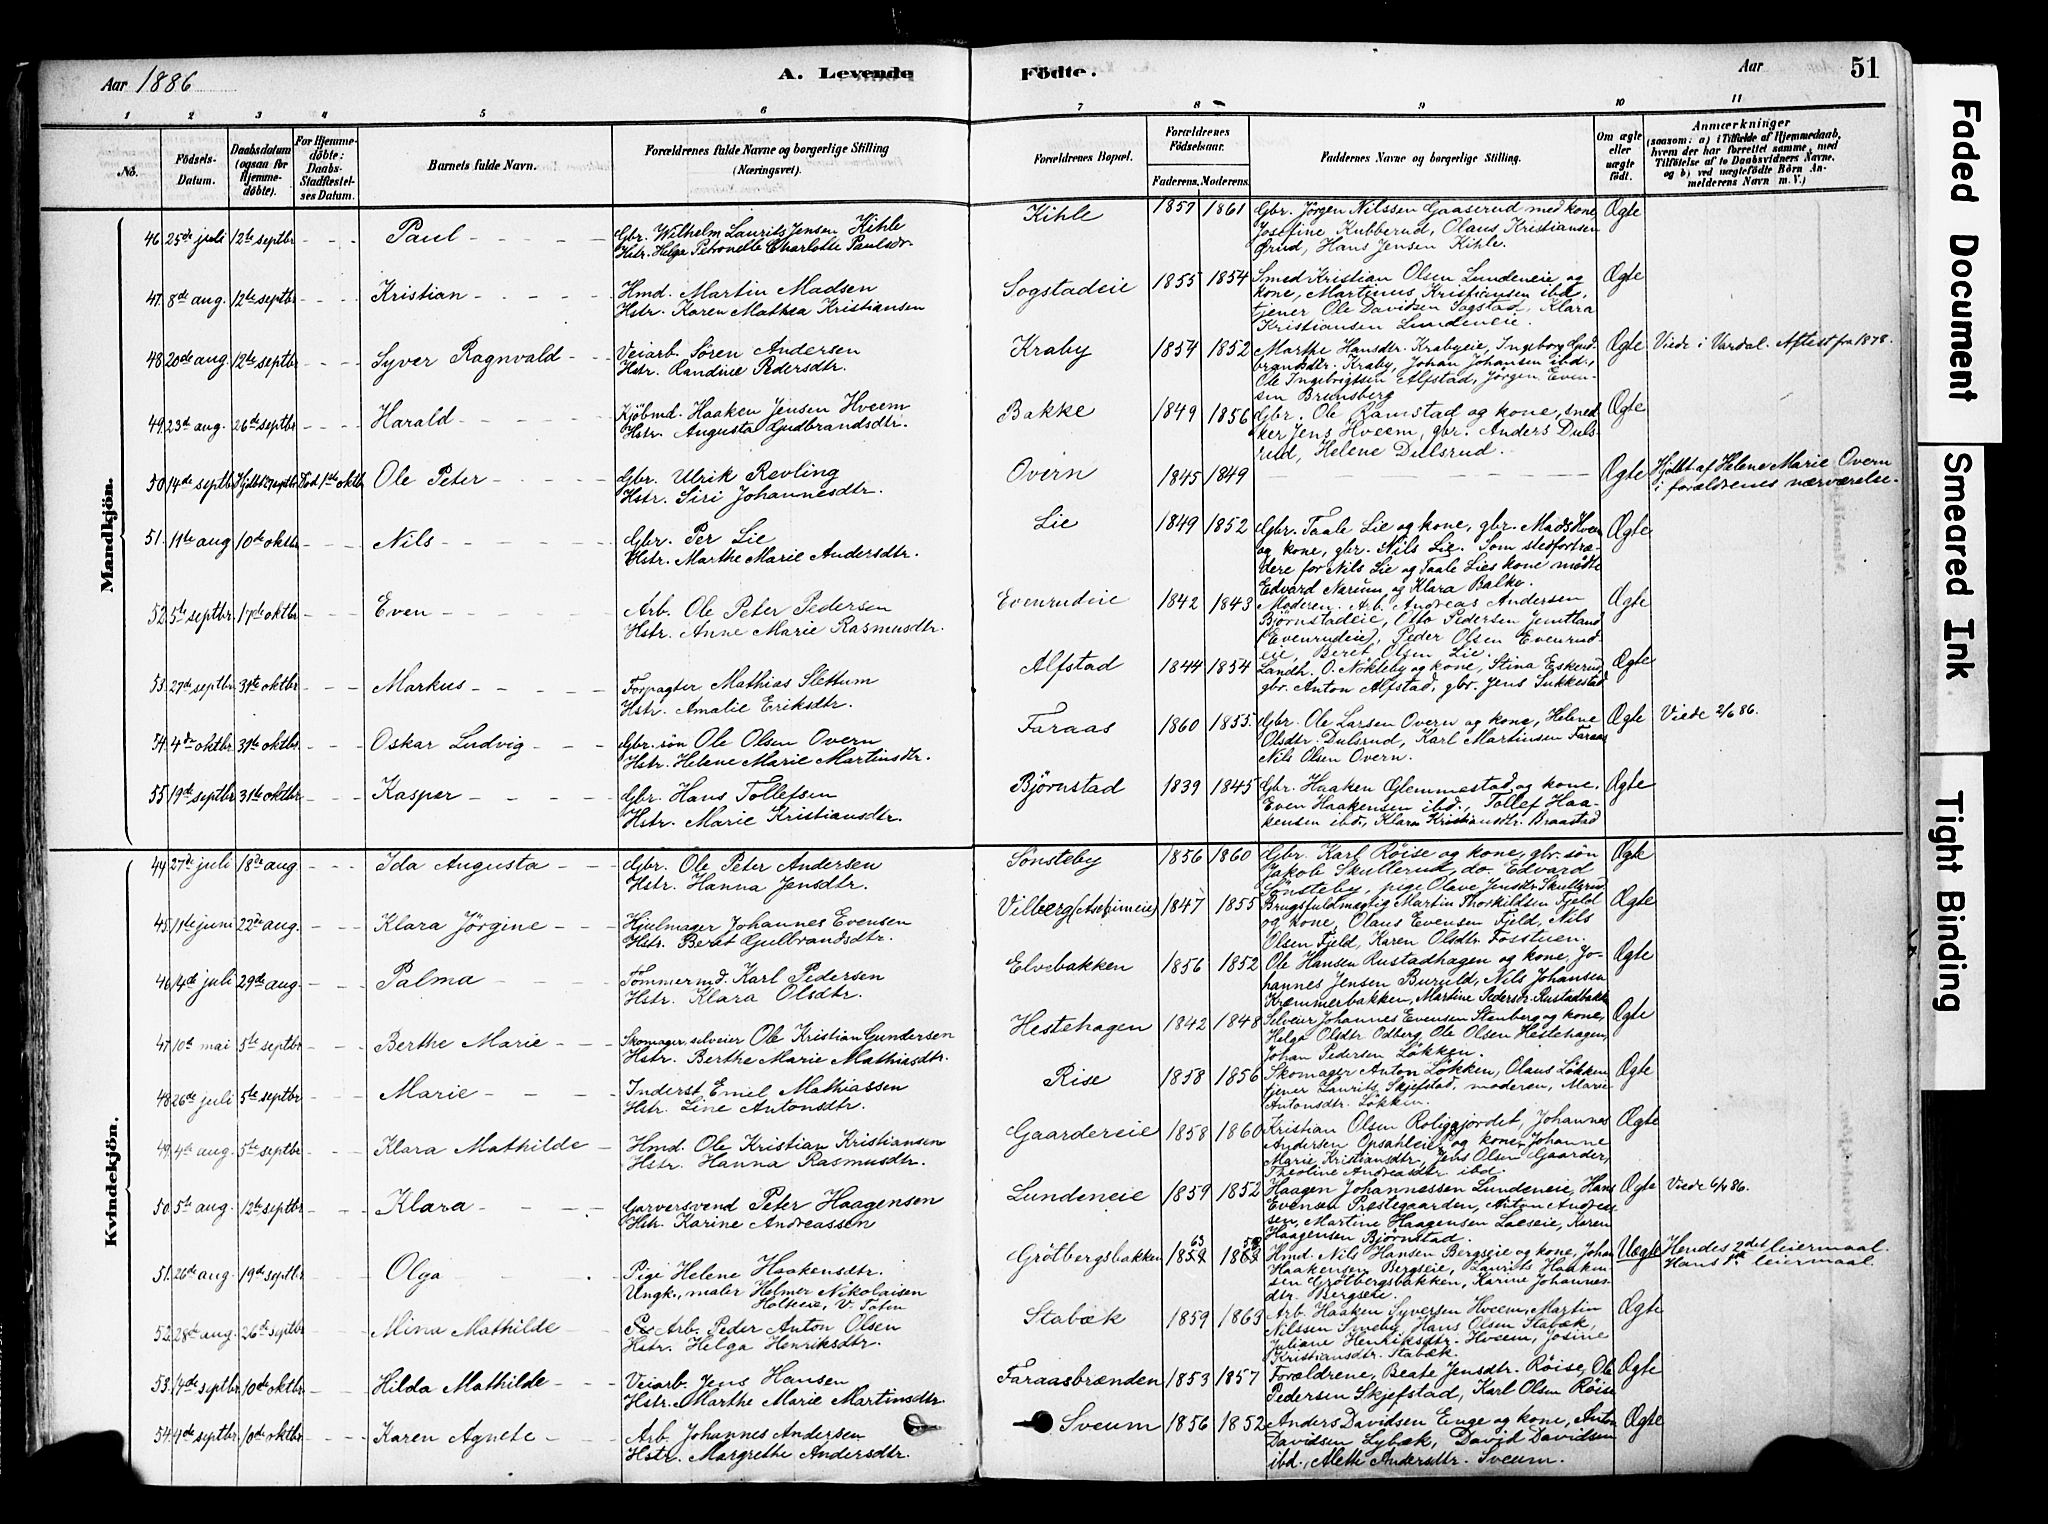 Aar 1886
A. Levende
Fødte.
Aar
51
1 2 3 4 5 6 7 8 9 10 11
No.
Fødsels-Datum.
Daabsdatum (ogsaa for Hjemmedøbte).
For Hjemmedøbte: Daabs-Stadfæstelses Datum.
Barnets fulde Navn.
Forældrenes fulde Navne og borgerlige Stilling (Næringsvei).
Forældrenes Bopæl.
Forældrenes Fødselsaar.
Faderens. Moderens.
Faddernes Navne og borgerlige Stilling.
Om ægte eller uægte født.
Anmærkninger
(saasom: a) i Tilfælde af Hjemmedaab, hvem der har forrettet samme, med Tilføielse af to Daabsvidners Navne, og b) ved uægtefødte Børn Anmelderens Navn m. V.)
Mandkjøn.
46. 25de juli 12te septbr Paul Gbr. Wilhelm Laurits Jensen Kihle
Hstr. Helga Petronelle Charlotte Paulsdr.
Kihle 1857 1861 Gbr. Jørgen Nilssen Gaaserud med kone
Josefine Kubberud, Olaus Kristiansen
Ørud, Hans Jensen Kihle.
Ægte
47. 8de aug. 12te septbr Kristian Hmd. Martin Madsen
Hstr. Karen Mathea Kristiansen
Sogstadeie 1855 1854 Smed Kristian Olsen Lundeneie og
kone, Martinus Kristiansen ibd.,
tjener Ole Davidsen Sogstad, Klara
Kristiansen Lundeneie.
Ægte
48. 20de aug. 12te septbr Syver Ragnvald Veiarb. Søren Andersen
Hstr. Randine Pedersdtr.
Kraby 1854 1852 Marthe Hansdtr. Krabyeie, Ingeborg Gud-
brandsdtr. Kraby, Johan Johansen ibd.,
Ole Ingebrigtsen Alfstad, Jørgen Even-
sen Brunsberg
Ægte Viede i Vardal. Attest fra 1878.
49. 23de aug. 26de septbr Harald Kjøbmd. Haaken Jensen Hveem
Hstr. Augusta Gudbrandsdtr.
Bakke 1849 1856 Gbr. Ole Ramstad og kone, sned-
ker Jens Hveem, gbr. Anders Duls-
rud, Helene Dulsrud.
Ægte
50. 14de septbr Hjdbt septbr Død 1ste oktbr Ole Peter Gbr. Ulrik Revling
Hstr. Siri Johannesdtr.
Overn 1845 1849 Ægte Hjdbt af Helene Marie Overn
i forældrenes nærværelse.
51. 11te aug 10de oktbr Nils Gbr. Per Lie
Hstr. Marthe Marie Andersdtr.
Lie 1849 1852 Gbr. Taale Lie og kone, gbr. Mads Hveem
og kone, gbr. Nils Lie. Som stedfortræ-
dere for Nils Lie og Taale Lies kone mødte
Edvard Narum og Klara Balke.
Ægte
52. 5te septbr. 17de oktbr Even Arb. Ole Peter Pedersen
Hstr. Anne Marie Rasmusdtr.
Evenrudeie 1842 1843 Moderen. Arb. Andreas Andersen
Bjørnstadeie, Otto Pedersen Jemtland
(Evenrudeie), Peder Olsen Evenrud-
eie, Beret Olsen Lie.
Ægte
53. 27de septbr. 31te oktbr Markus Forpagter Mathias Slettum
Hstr. Amalie Eriksdtr.
Alfstad 1844 1854 Landh. O. Nøkleby og kone, Stina Eskerud,
gbr. Anton Alfstad, gbr. Jens Sukkestad
Ægte
54. 4de oktbr 31te oktbr Oskar Ludvig Gbr. søn Ole Olsen Overn
Hstr. Helene Marie Martinsdtr.
Faraas 1860 1855. Gbr. Ole Larsen Overn og kone, Helene
Olsdtr. Dulsrud, Karl Martinsen Faraas
Nils Olsen Overn.
Ægte Viede 2/6 86.
55. 19de septbr 31te oktbr Kasper Gbr. Hans Tollefsen
Hstr. Marie Kristiansdtr.
Bjørnstad 1839 1845 Gbr. Haaken Glemmestad og kone,
Even Haakensen ibd., Tollef Haa-
kensen ibd., Klara Kristiansdtr. Braastad
Ægte
Kvindekjøn.
44. 27de juli 18de aug Ida Augusta Gbr. Ole Peter Andersen
Hstr. Hanna Jensdtr.
Sønsteby 1856 1860 Gbr. Karl Røise og kone, gbr. søn
Jakob Skullerud, do. Edvard
Sønsteby, pige Olave Jensdtr. Skullerud
Ægte
45. 11te juni 22de aug. Klara Jørgine Hjulmager Johannes Evensen
Hstr. Beret Gulbrandsdtr.
Vilberg 1847 1855 Brugsfuldmægtig Martin Thorkildsen Fjeld
og kone, Olaus Evensen Fjeld, Nils
Olsen Fjeld, Karen Olsdtr. Fosstuen.
Ægte
46. 14de juli 29de aug Palma Tømmermd. Karl Pedersen
Hstr. Klara Olsdtr.
Elvebakken 1856 1852 Ole Hansen Rustadhagen og kone, Jo-
hannes Jensen Buruld, Nils Johansen
Kræmmerbakken, Martine Pedersdtr. Rustadbakk
Ægte
47. 10de mai 5te septbr Berthe Marie Skomager, selveier Ole Kristian Gundersen
Hstr. Berthe Marie Mathiasdtr.
Hestehagen 1842 1848 Selveier Johannes Evensen Stenberg og kone,
Helga Olsdtr Odberg, Ole Olsen Hestehagen,
Johan Pedersen Løkken.
Ægte
48. 26de juli 5te septbr Marie Inderst Emil Mathiassen
Hstr. Line Antonsdtr.
Rise 1858 1856 Skomager Anton Løkken, Olaus Løkken
tjener Laurits Skjefstad, moderen, Marie
Antonsdtr. Løkken.
Ægte
49. 4de aug. 5te septbr Klara Mathilde Hmd. Ole Kristian Kristiansen
Hstr. Hanna Rasmusdtr.
Gaardereie 1858 1860 Kristian Olsen Roliggjordet, Johannes
Andersen Opsahleie og kone, Johanne
Marie Kristiansdtr., Jens Olsen Gaarder,
Theoline Andreasdtr. ibd.
Ægte
50. 5te aug. 12te septbr Klara Garversvend Peter Haagensen
Hstr. Karine Andreassen
Lundeneie 1859 1852 Haagen Johannessen Lundeneie, Hans
Evensen Præstegaarden, Anton Andreas-
sen, Martine Haagensen Laeseie, Karen
Haagensen Bjørnstad.
Ægte Viede 6/4 86.
51. 26de aug. 19de septbr Olga Pige Helene Haakensdtr.
Ungk., maler Helmer Nikolaisen
Holteeie, V. Toten
Grøtbergsbakken 1863 1852 Hmd. Nils Hansen Bergseie og kone, Johan
Haakensen Bergseie, Laurits Haaken-
sen Grøtbergsbakken, Karine Johannes-
dtr. Bergseie.
Uægte Hendes 2det leiermaal.
Hans 1ste leiermaal.
52. 28de aug. 26de septbr Mina Mathilde Arb. Peder Anton Olsen
Hstr. Helga Henriksdtr.
Stabæk 1859 1863 Arb. Haaken Syversen Hveem, Martin
Nilssen Smeby, Hans Olsen Stabæk,
Juliane Henriksdtr. Hveem, Josine
Kristiansdtr. Stabæk.
Ægte
53. 14de septbr 10de oktbr Hilda Mathilde Veiarb. Jens Hansen
Hstr. Marthe Marie Martinsdtr.
Faraasbrænden 1853 1857 Forældrene, Beate Jensdtr. Røise, Ole
Pedersen Skjefstad, Karl Olsen Røise
Ægte
54. 4de septbr 10de oktbr Karen Agnete Arb. Johannes Andersen
Hstr. Margrethe Andersdtr.
Sveum 1856 1852 Anders Davidsen Enge og kone, Anton
Davidsen Lybæk, David Davidsen
ibd., Alette Andersdtr. Sveum.
Ægte
Faded Document
Smeared Ink
Tight Binding